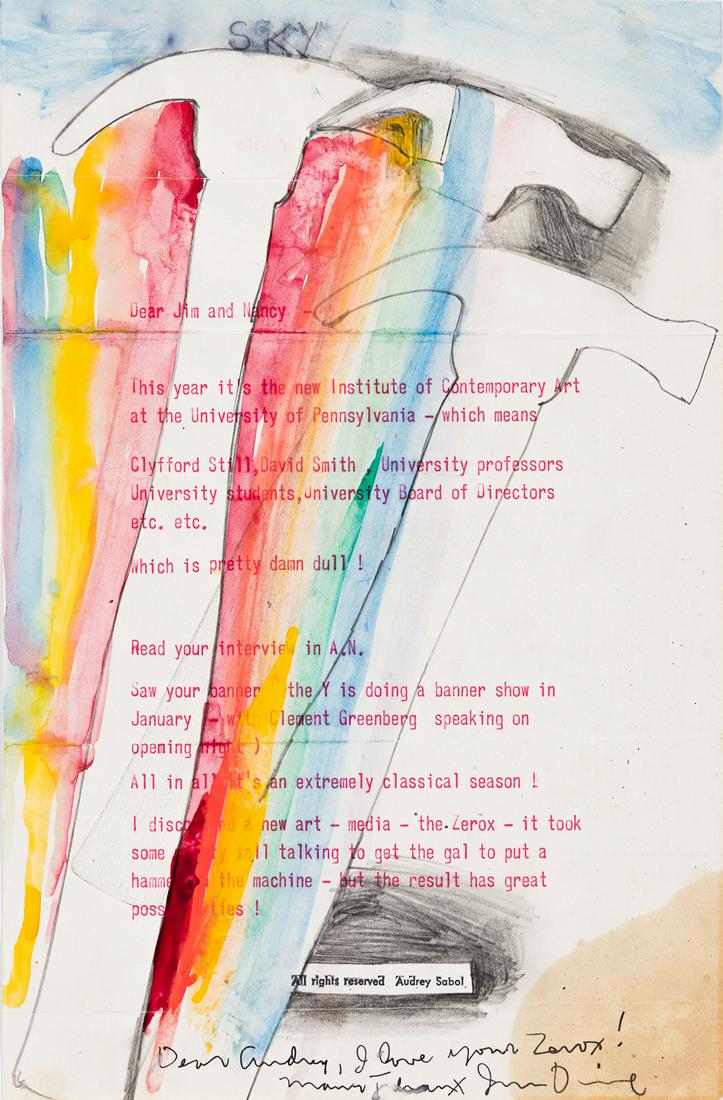 SKY
Dear Jim and Nancy -
This year it's the new Institute of Contemporary Art
at the University of Pennsylvania - which means
Clyfford Still, David Smith , University professors
University students, University Board of Directors
etc. etc.
Which is pretty damn dull !
Read your interview in A.N.
Saw your banner the Y is doing a banner show in
January - with Clement Greenberg speaking on
opening night )
All in all it's an extremely classical season !
I discovered a new art - media - the Zerox - it took
some tall talking to get the gal to put a
hammer on the machine - but the result has great
possibilities !
All rights reserved Audrey Sabol
Dear Audrey, I love your Zerox!
many Thanx Jim Dine